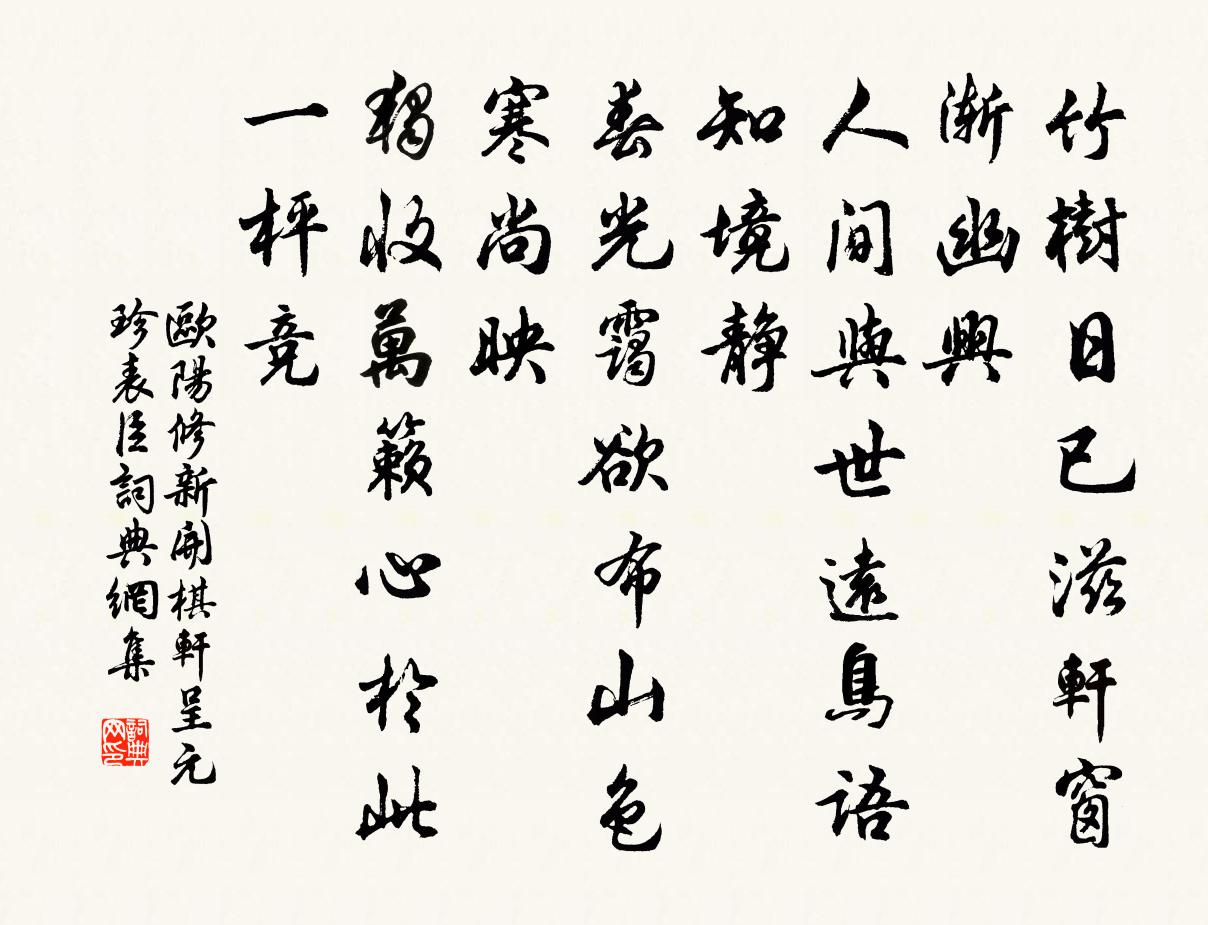 竹樹日已滋軒窗
漸幽興
人間與世遠鳥語
知境靜
春光靄欲布山色
寒尚映
獨收萬籟心於此
一枰竞
歐陽修新開棋軒呈元
珍表臣詞典網集
詞典網印